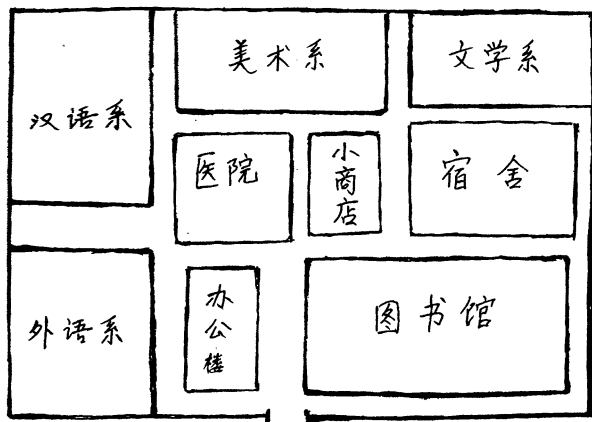 汉语系
美术系
文学系
医院
小商店
宿舍
外语系
办公楼
图书馆